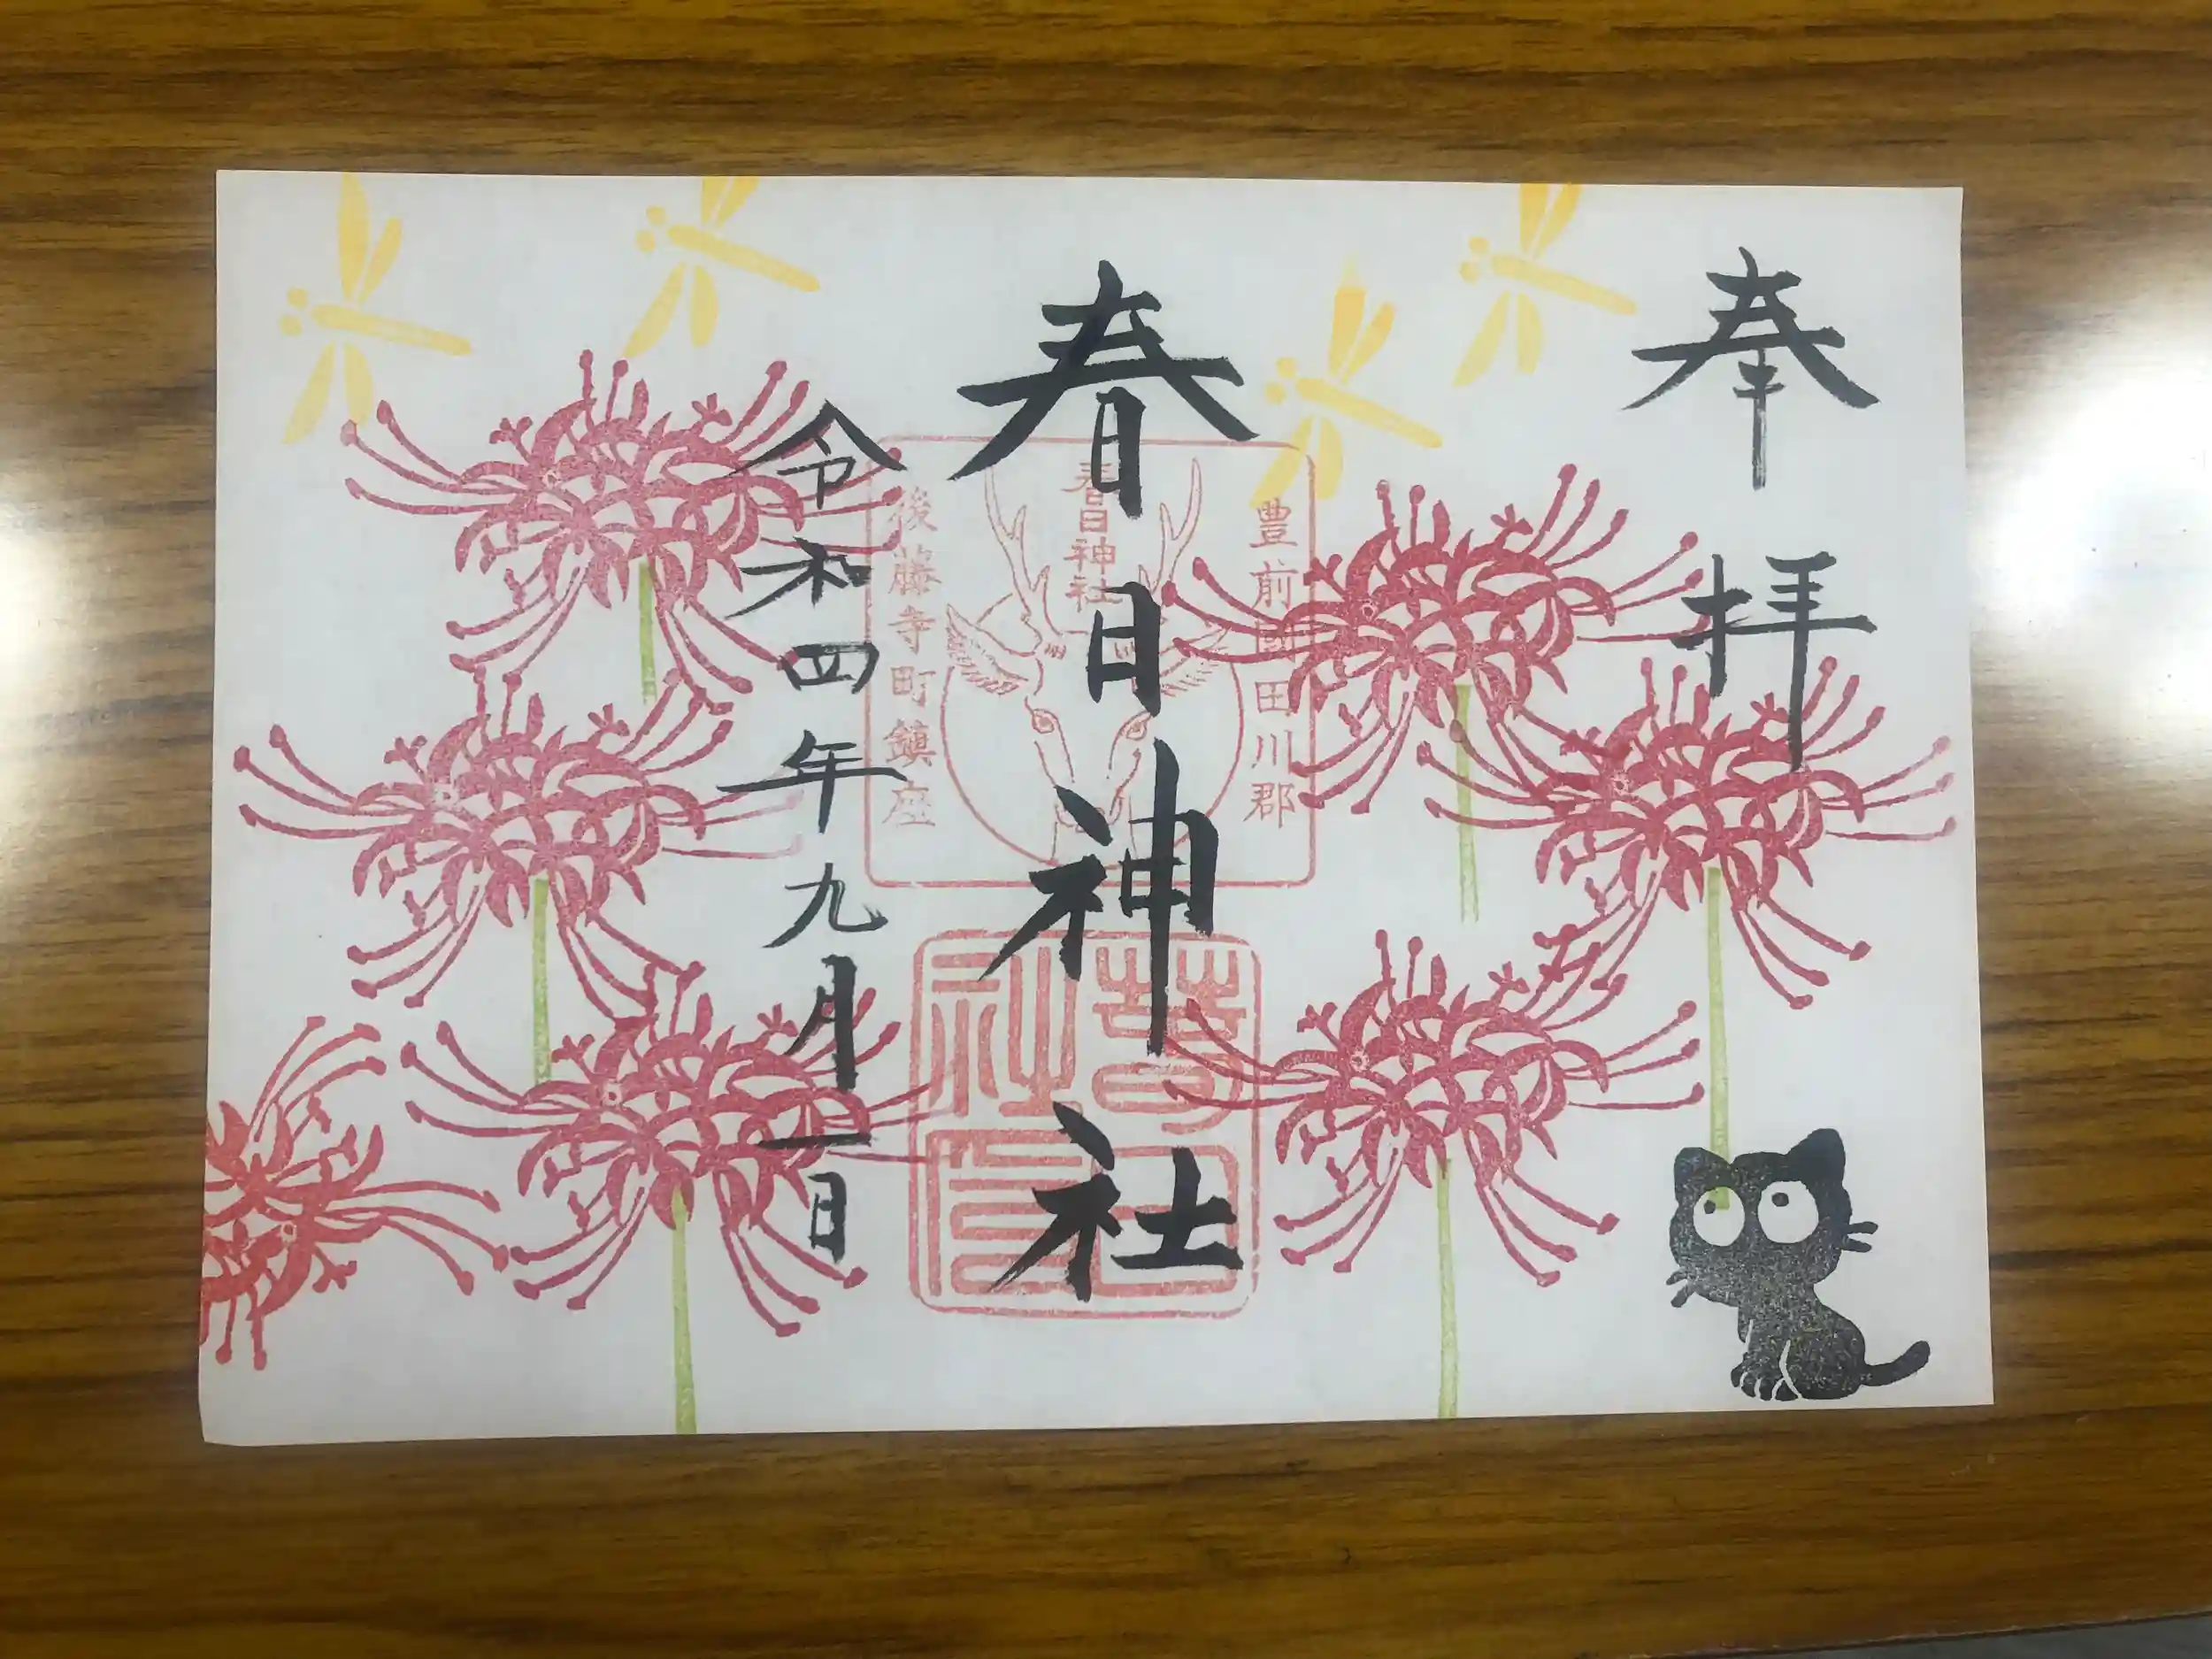 奉拝
豊前國田川郡
春日神社
後藤寺町鎮座
春日神社
令和四年九月一日